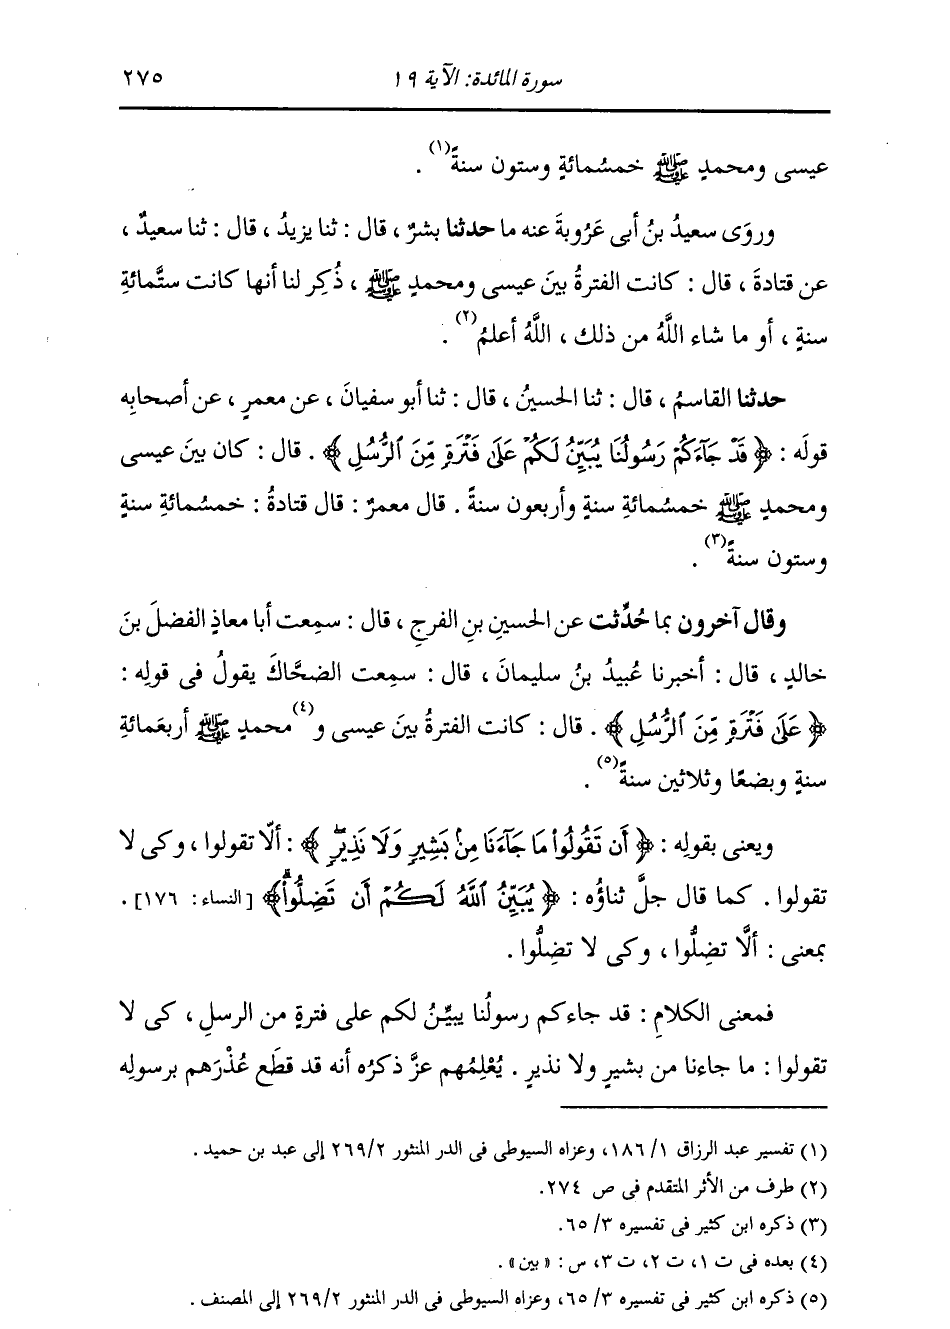 سورة المائدة: الآية ١٩ ٢٧٥
عيسى ومحمدٍ ﷺ خمسُمائةٍ وستون سنةً(١) .
وروَى سعيدُ بنُ أبى عَرُوبةَ عنه ما حدثنا بشرٌ ، قال : ثنا يزيدُ ، قال : ثنا سعيدٌ ،
عن قتادةَ ، قال : كانت الفترةُ بينَ عيسى ومحمدٍ ﷺ ، ذُكِر لنا أنها كانت ستَّمائةِ
سنةٍ ، أو ما شاء اللَّهُ من ذلك ، اللَّهُ أعلمُ(٢) .
حدثنا القاسمُ ، قال : ثنا الحسينُ ، قال : ثنا أبو سفيانَ ، عن معمرٍ ، عن أصحابِه
قولَه : ﴿ قَدْ جَآءَكُمْ رَسُولُنَا يُبَيِّنُ لَكُمْ عَلَىٰ فَتْرَةٍ مِّنَ ٱلرُّسُلِ ﴾ . قال : كان بينَ عيسى
ومحمدٍ ﷺ خمسُمائةِ سنةٍ وأربعون سنةً . قال معمرٌ : قال قتادةُ : خمسُمائةِ سنةٍ
وستون سنةً(٣) .
وقال آخرون بما حُدِّثت عن الحسينِ بنِ الفرجِ ، قال : سمِعت أبا معاذٍ الفضلَ بنَ
خالدٍ ، قال : أخبرنا عُبيدُ بنُ سليمانَ ، قال : سمِعت الضحَّاكَ يقولُ فى قولِه :
﴿ عَلَىٰ فَتْرَةٍ مِّنَ ٱلرُّسُلِ ﴾ . قال : كانت الفترةُ بينَ عيسى و(٤)محمدٍ ﷺ أربعَمائةِ
سنةٍ وبضعًا وثلاثين سنةً(٥) .
ويعنى بقولِه : ﴿ أَن تَقُولُوا۟ مَا جَآءَنَا مِنۢ بَشِيرٍ وَلَا نَذِيرٍۖ ﴾ : ألّا تقولوا ، وكى لا
تقولوا . كما قال جلَّ ثناؤُه : ﴿ يُبَيِّنُ ٱللَّهُ لَكُمْ أَن تَضِلُّوا۟ۗ ﴾ [النساء: ١٧٦] .
بمعنى : ألَّا تضِلُّوا ، وكى لا تضِلُّوا .
فمعنى الكلامِ : قد جاءكم رسولُنا يبيِّنُ لكم على فترةٍ من الرسلِ ، كى لا
تقولوا : ما جاءنا من بشيرٍ ولا نذيرٍ . يُعْلِمُهم عزَّ ذكرُه أنه قد قطَع عُذْرَهم برسولِه
(١) تفسير عبد الرزاق ١/ ١٨٦، وعزاه السيوطى فى الدر المنثور ٢/ ٢٦٩ إلى عبد بن حميد .
(٢) طرف من الأثر المتقدم فى ص ٢٧٤.
(٣) ذكره ابن كثير فى تفسيره ٣/ ٦٥.
(٤) بعده فى ت ١، ت ٢، ت ٣، س : « بين» .
(٥) ذكره ابن كثير فى تفسيره ٣/ ٦٥، وعزاه السيوطى فى الدر المنثور ٢/ ٢٦٩ إلى المصنف .